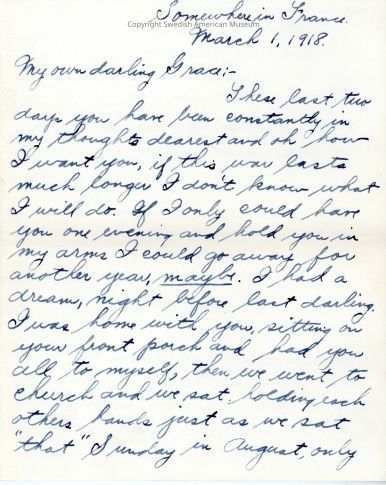 Somewhere in France.
Copyright Swedish American Museum
March 1, 1918.
My own darling Grace:-
These last two
days you have been constantly in
my thoughts dearest and oh how
I want you, if this war lasts
much longer I don't know what
I will do. If I only could have
you one evening and hold you in
my arms I could go away for
another year, maybe. I had a
dream, night before last darling.
I was home with you, sitting on
your front porch and had you
all to myself, then we went to
church and we sat holding each
others hands just as we sat
"that" Sunday in August, only